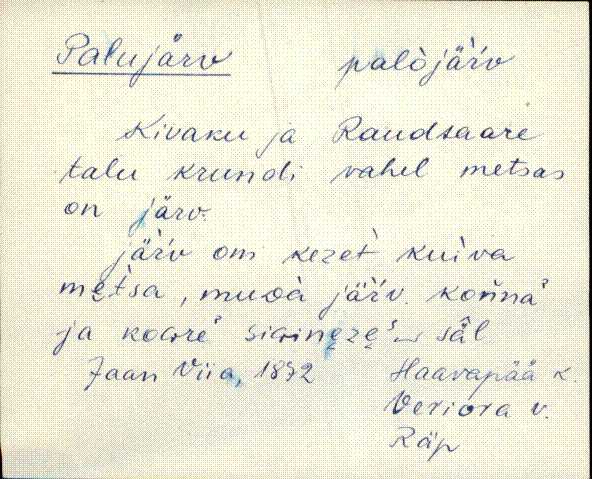 Palujärv palòjäŕv
Kivaku ja Raudsaare
talu krundi vahel metsas
on järv.
jäŕv om kezet kuiva
mętsa, muda jäŕv. końna'
ja
säl
Jaan Viia, 1892 Haavapää k.
Veriora v.
Räp